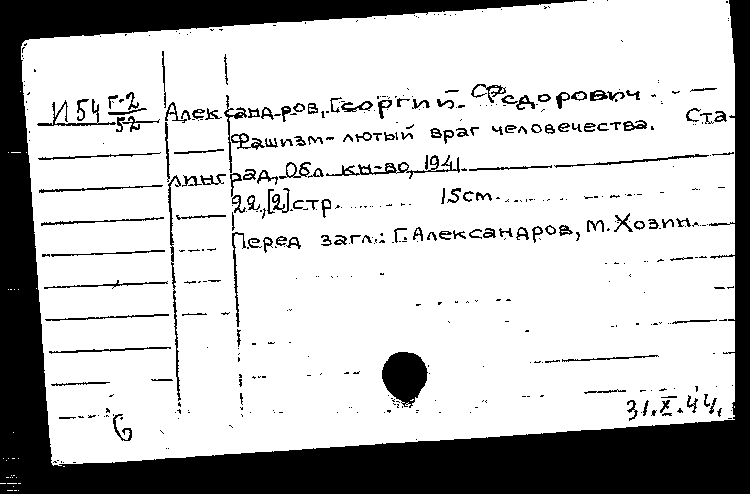 И54 Г-2/52
Александров, Георгий Федорович.
Фашизм - лютый враг человечества. Ста-
линград, Обл. кн-во, 1941.
22, [2] стр. 15 см.
Перед загл.: Г. Александров, М. Хозин.
6
31.X.44.